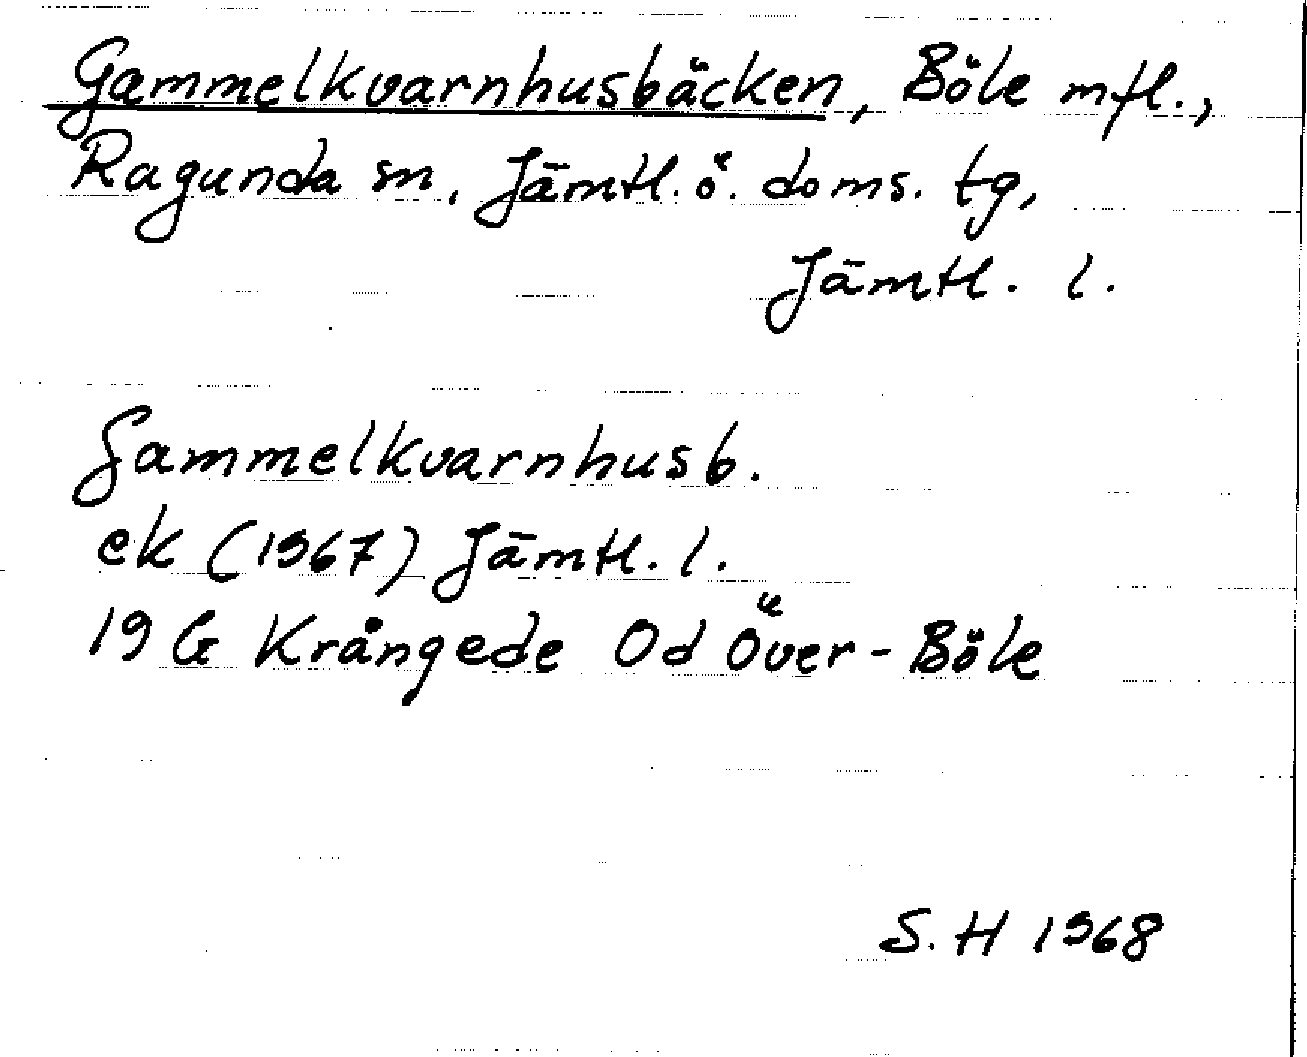 Gammelkvarnhusbäcken, Böle mfl.,
Ragunda sn, Jämtl. ö. doms. tg,
Jämtl. l.
Gammelkvarnhusb.
ek (1967) Jämtl. l.
19 G Krångede Od Över-Böle
S. H 1968